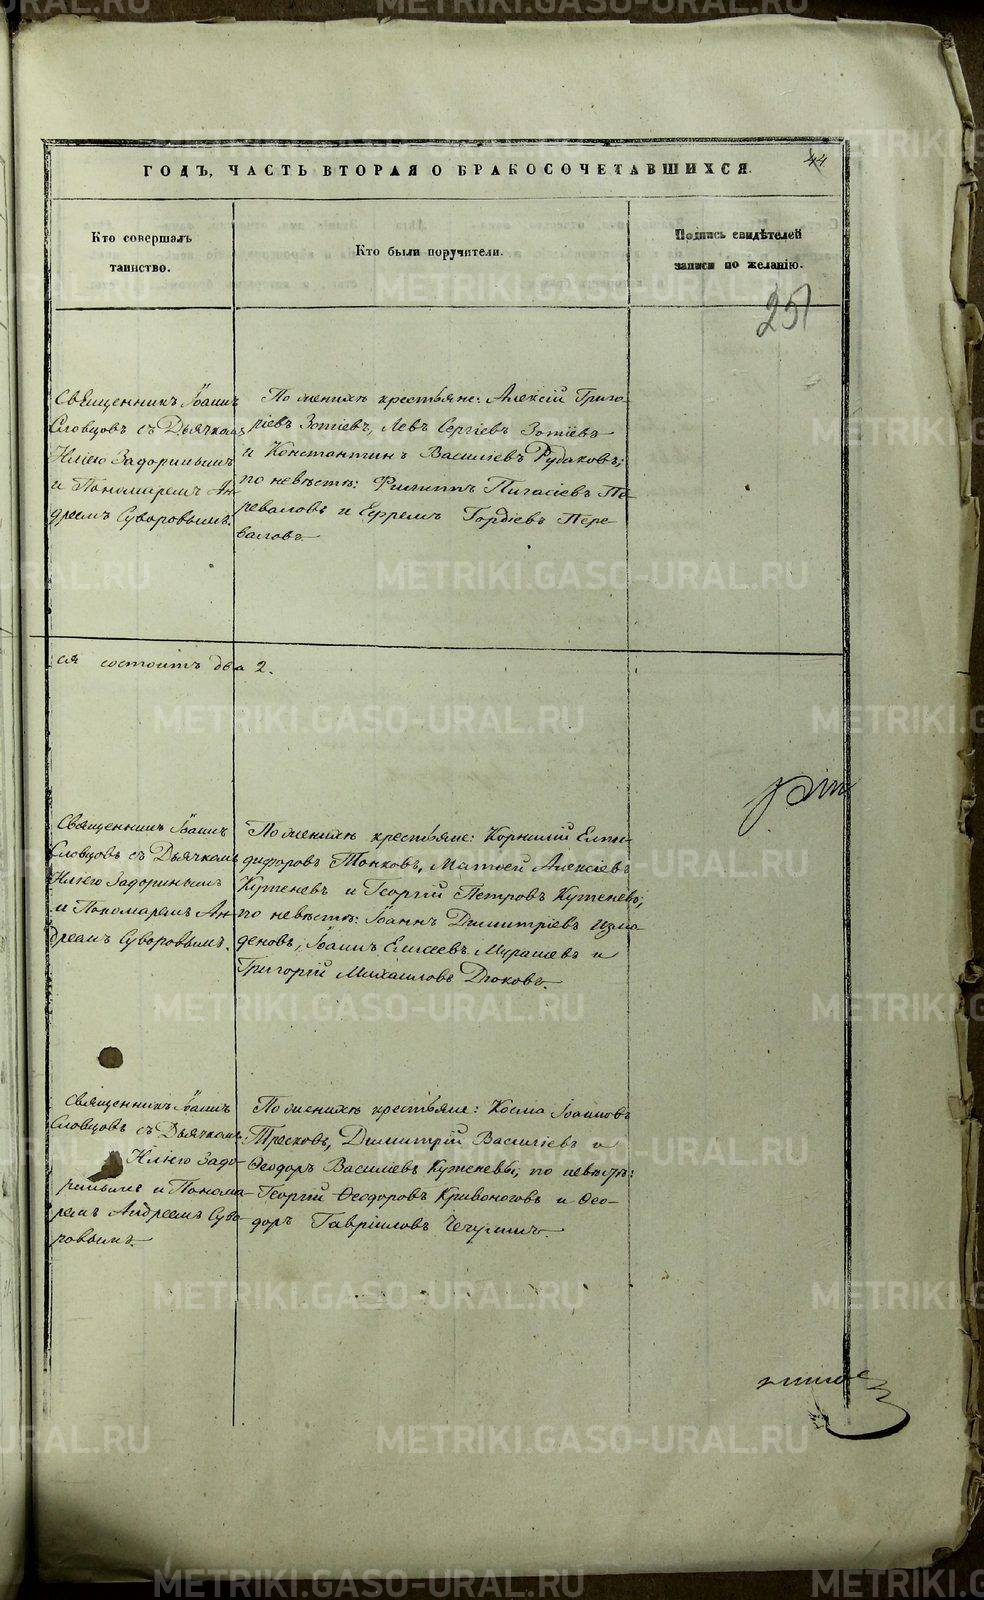 ГОДЪ, ЧАСТЬ ВТОРАЯ О БРАКОСОЧЕТАВШИХСЯ.
44
Кто совершалъ
таинство.
Кто были поручители.
Подпись свидѣтелей
записи по желанію.
251
Священникъ Іоаннъ
Словцовъ съ Дьячкомъ
Иліею Задоринымъ
и Пономаремъ Ан-
дреемъ Суворовымъ.
По женихѣ крестьяне: Алексій Григо-
ріевъ Зотіевъ, Левъ Сергіевъ Зотіевъ
и Константинъ Василіевъ Рудаковъ;
по невѣстѣ: Филиппъ Пигасіевъ Пе-
реваловъ и Ефремъ Гордіевъ Пере-
валовъ.
ся состоитъ два 2.
Священникъ Іоаннъ
Словцовъ съ Дьячкомъ
Иліею Задоринымъ
и Пономаремъ Ан-
дреемъ Суворовымъ.
По женихѣ крестьяне: Корнилій Елпи-
дифоровъ Тонковъ, Матѳей Алексіевъ
Куженевъ и Георгій Петровъ Куженевъ;
по невѣстѣ: Іоаннъ Димитріевъ Измо-
деновъ, Іоаннъ Елисеевъ Мурашевъ и
Григорій Михаиловъ Дюковъ.
Священникъ Іоаннъ
Словцовъ съ Дьячкомъ
Иліею Задо-
ринымъ и Понома-
ремъ Андреемъ Суво-
ровымъ.
По женихѣ крестьяне: Косма Іоанновъ
Тресковъ, Димитрій Василіевъ и
Ѳеодоръ Василіевъ Куженевы; по невѣстѣ:
Георгій Ѳеодоровъ Кривоноговъ и Ѳео-
доръ Гавріиловъ Чечулинъ.
METRIKI.GASO-URAL.RU